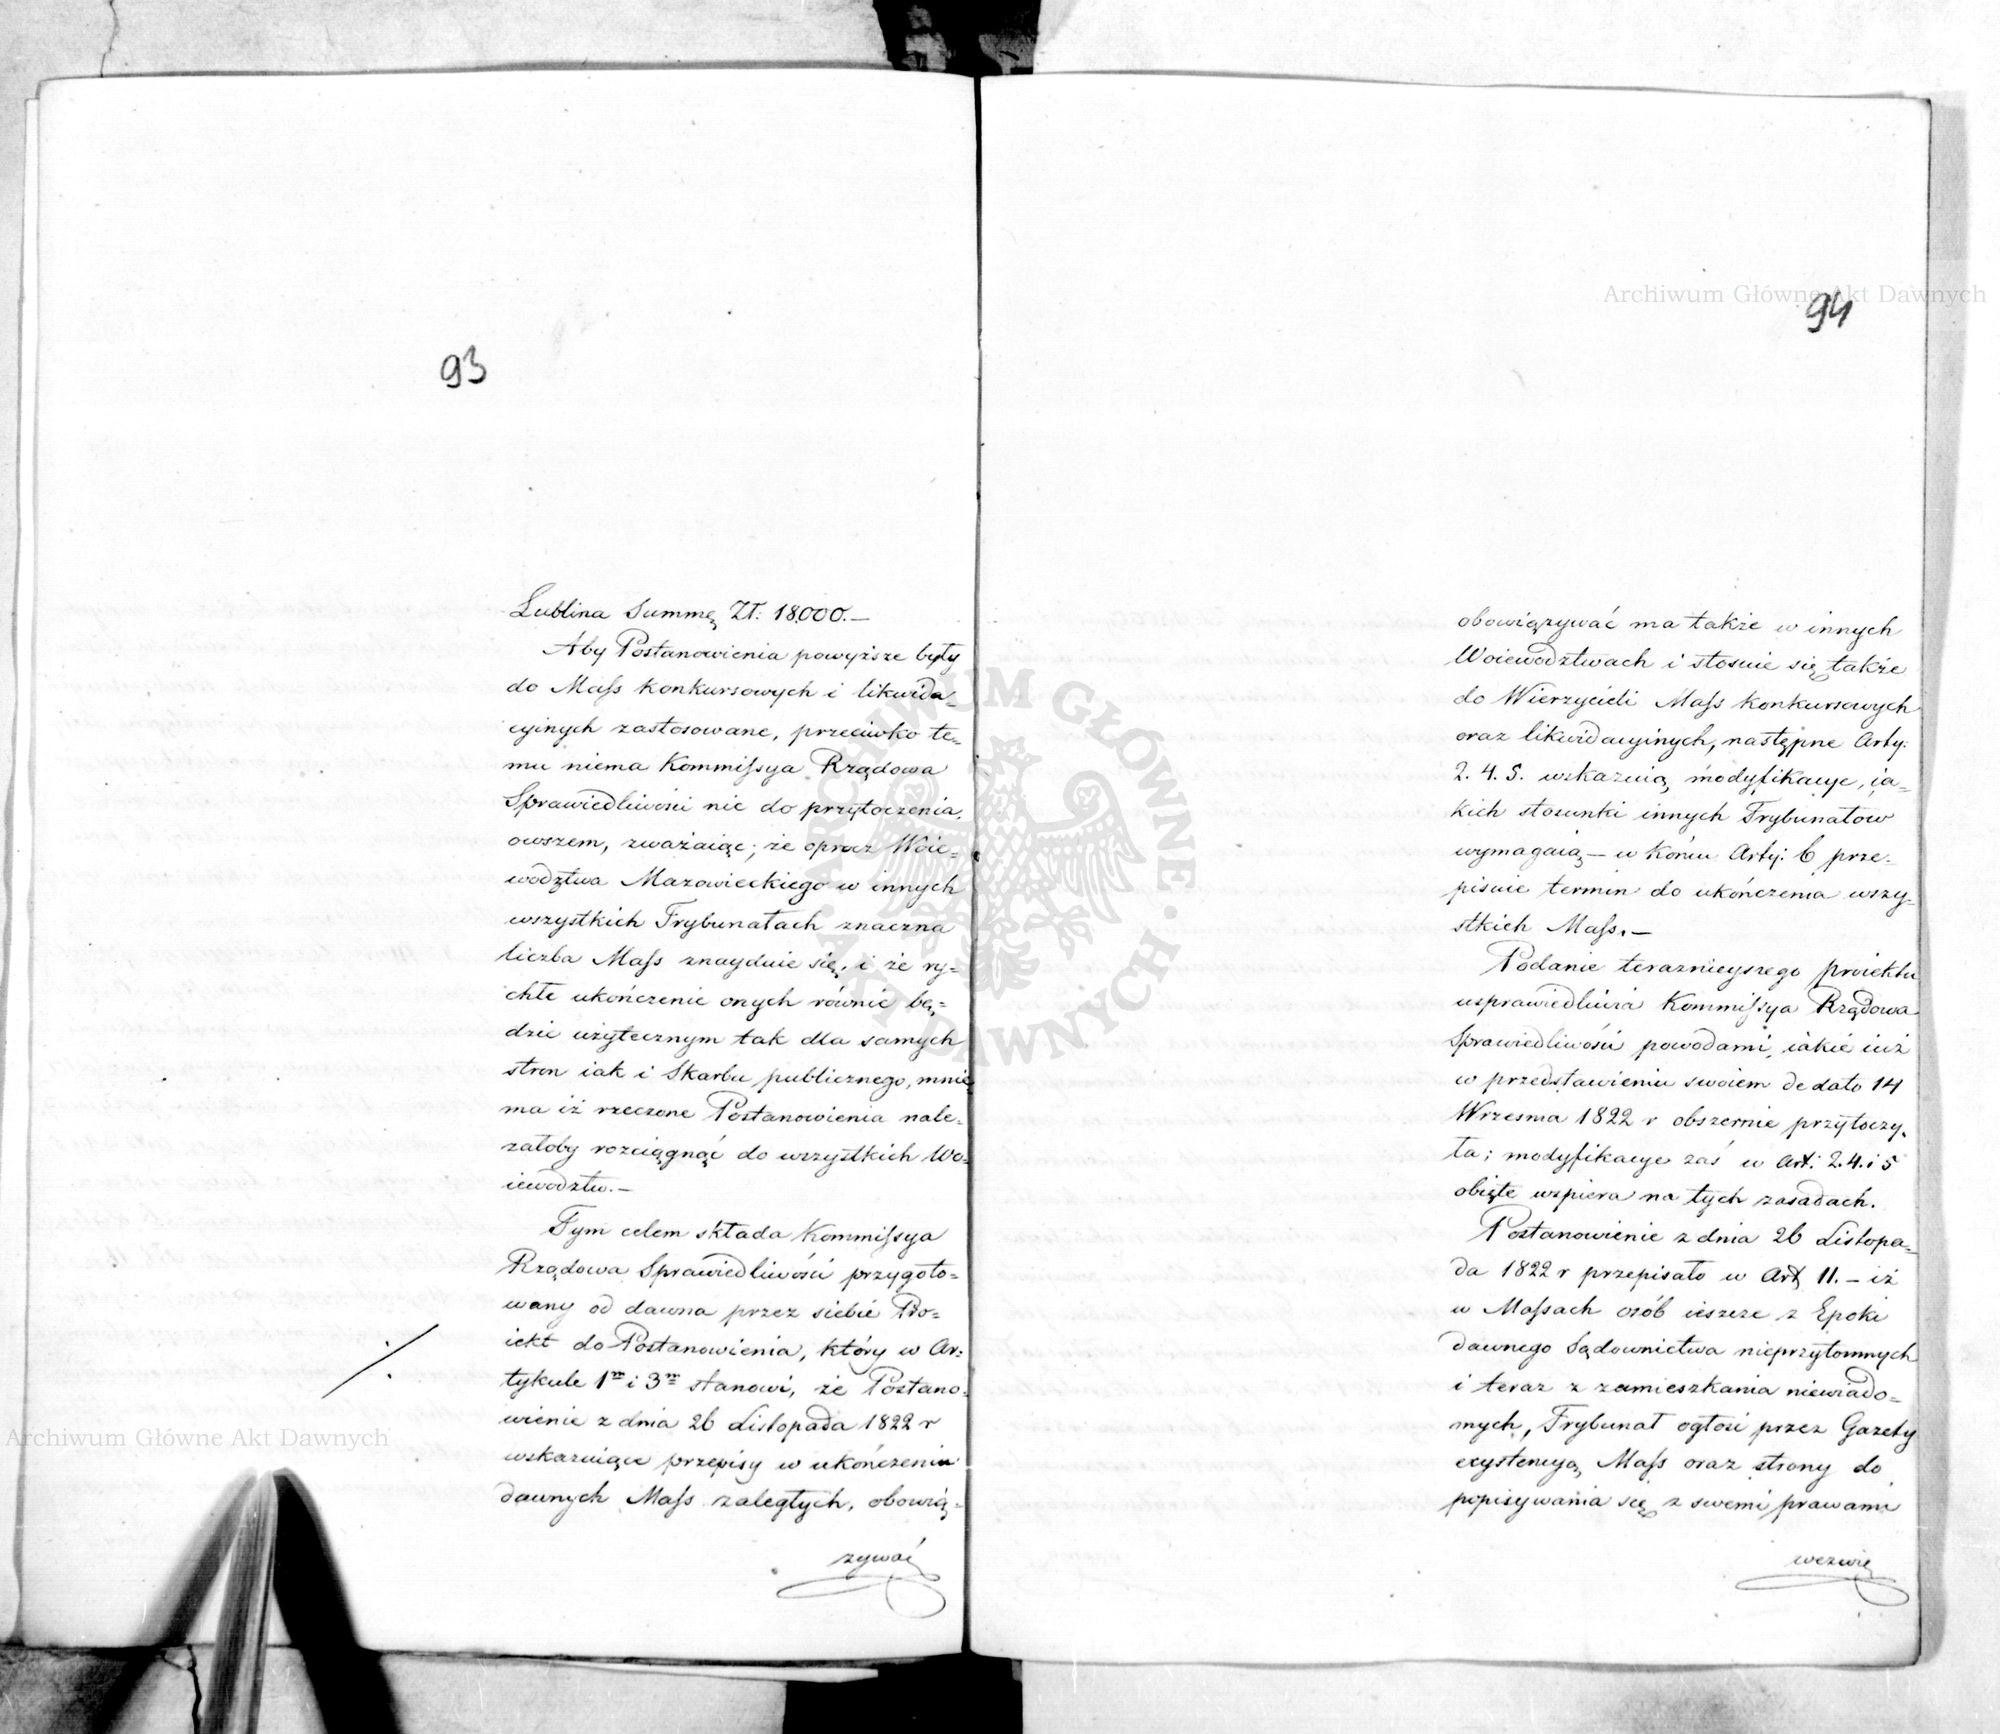 93
Lublina Summę Zł: 18.000.—
Aby Postanowienia powyższe były
do Mass konkursowych i likwida-
cyinych zastosowane, przeciwko te-
mu niema Kommissya Rządowa
Sprawiedliwości nic do przytoczenia,
owszem, zważaiąc; że oprócz Woie-
wództwa Mazowieckiego w innych
wszystkich Trybunałach znaczna
liczba Mass znayduie się, i że ry-
chłe ukończenie onych równie bę-
dzie użytecznym tak dla samych
stron iak i Skarbu publicznego, mnie-
ma iż rzeczone Postanowienia nale-
załoby rozciągnąć do wszystkich Wo-
iewodztw.—
Tym celem składa Kommissya
Rządowa Sprawiedliwości przygoto-
wany od dawna przez siebie Pro-
iekt do Postanowienia, który w Ar-
tykule 1m i 3m stanowi, że Postano-
wienie z dnia 26 Listopada 1822 r
wskazuiące przepisy w ukończeniu
dawnych Mass zaległych, obowią-
zywać
94
obowiązywać ma także w innych
Woiewodztwach i stosuie się także
do Wierzycieli Mass konkursowych
oraz likwidacyinych, następne Arty:
2. 4. 5. wskazuią modyfikacye, ia-
kich stosunki innych Trybunałow
wymagaią — w końcu Arty: 6 prze-
pisuie termin do ukończenia wszy-
stkich Mass.—
Podanie teraznieyszego proiektu
usprawiedliwia Kommissya Rządowa
Sprawiedliwości powodami, iakie iuż
w przedstawieniu swoiem de dato 14
Wrzesnia 1822 r obszernie przytoczy-
ła; modyfikacye zaś w Art: 2. 4. i 5
obięte wspiera na tych zasadach.
Postanowienie z dnia 26 Listopa-
da 1822 r przepisało w Art 11. — iż
w Massach osób ieszcze z Epoki
dawnego Sądownictwa nieprzytomnych
i teraz z zamieszkania niewiado-
mych, Trybunał ogłosi przez Gazety
exystencyą Mass oraz strony do
popisywania się z swemi prawami
wezwie
Archiwum Główne Akt Dawnych
Archiwum Główne Akt Dawnych
ARCHIWUM GŁÓWNE AKT DAWNYCH